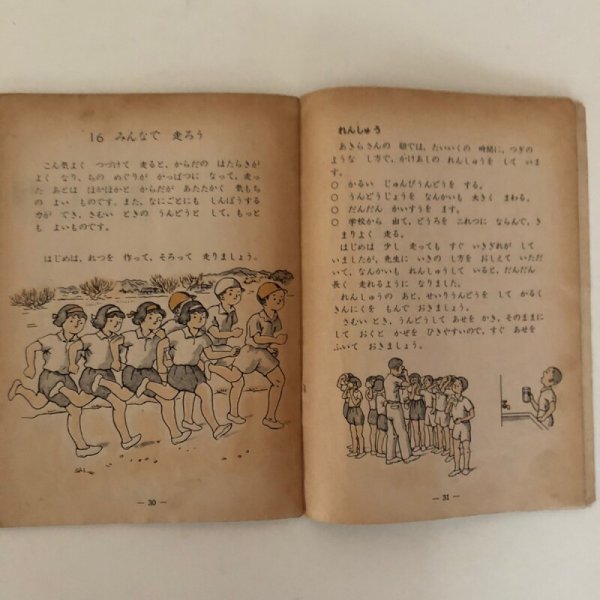 16 みんなで 走ろう
こん気よく つづけて 走ると、からだの はたらきが
よく なり、ちの めぐりが かっぱつに なって、走っ
た あとは ほかほかと からだが あたたかく 気もち
の よい ものです。また、なにごとにも しんぼうする
力が でき、さむい ときの うんどうと して、もっと
も よいものです。
はじめは、れつを 作って、そろって 走りましょう。
— 30 —
れんしゅう
あきらさんの 組では、たいいくの 時間に、つぎの
ような し方で、かけあしの れんしゅうを して いま
す。
○ かるい じゅんびうんどうを する。
○ うんどうじょうを なんかいも 大きく まわる。
○ だんだん かいすうを ます。
○ 学校から 出て、どうろを これつに ならんで、き
まりよく 走る。
はじめは 少し 走っても すぐ いきぎれが して
いましたが、先生に いきの し方を おしえて いただ
いて、なんかいも れんしゅうして いると、だんだん
長く 走れるように なりました。
れんしゅうの あと、せいりうんどうを して かるく
きんにくを もんで おきましょう。
さむい とき、うんどうして あせを かき、そのままに
して おくと かぜを ひきやすいので、すぐ あせを
ふいて おきましょう。
— 31 —